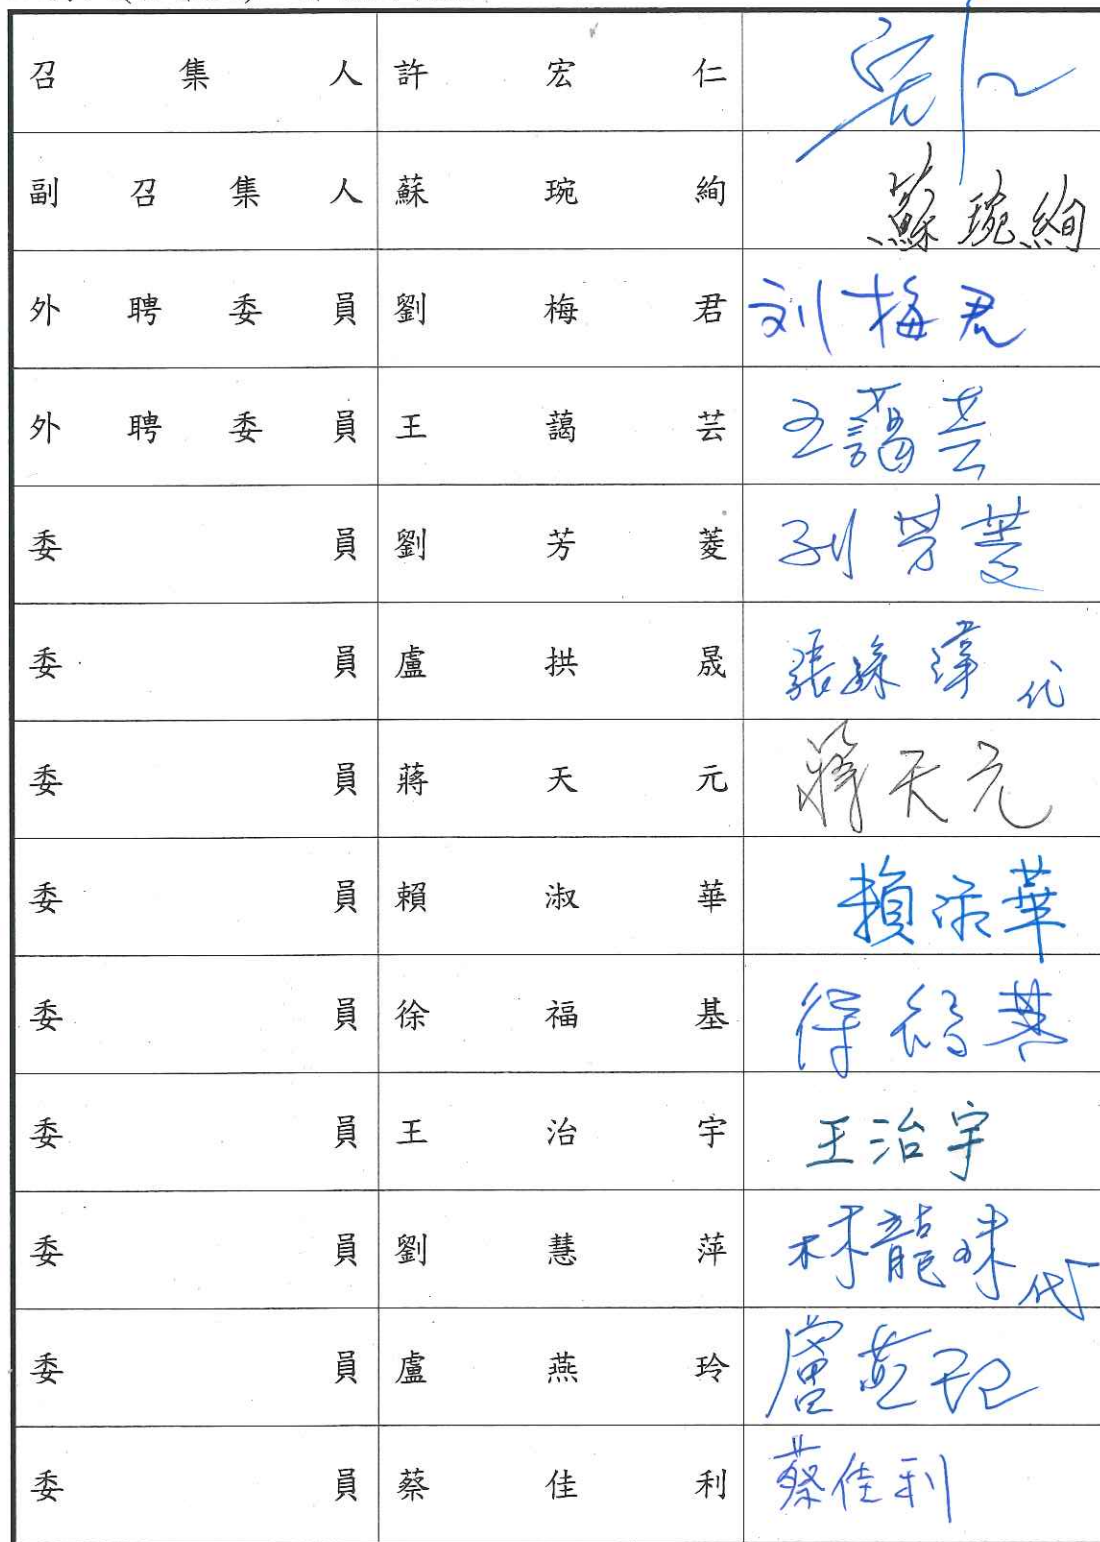 召集人 許宏仁
副召集人 蘇琬絢 蘇琬絢
外聘委員 劉梅君 刘梅君
外聘委員 王藹芸 王藹芸
委員 劉芳菱 刘芳菱
委員 盧拱晟 代
委員 蔣天元 蔣天元
委員 賴淑華 賴淑華
委員 徐福基 徐福基
委員 王治宇 王治宇
委員 劉慧萍 代
委員 盧燕玲 盧燕玲
委員 蔡佳利 蔡佳利